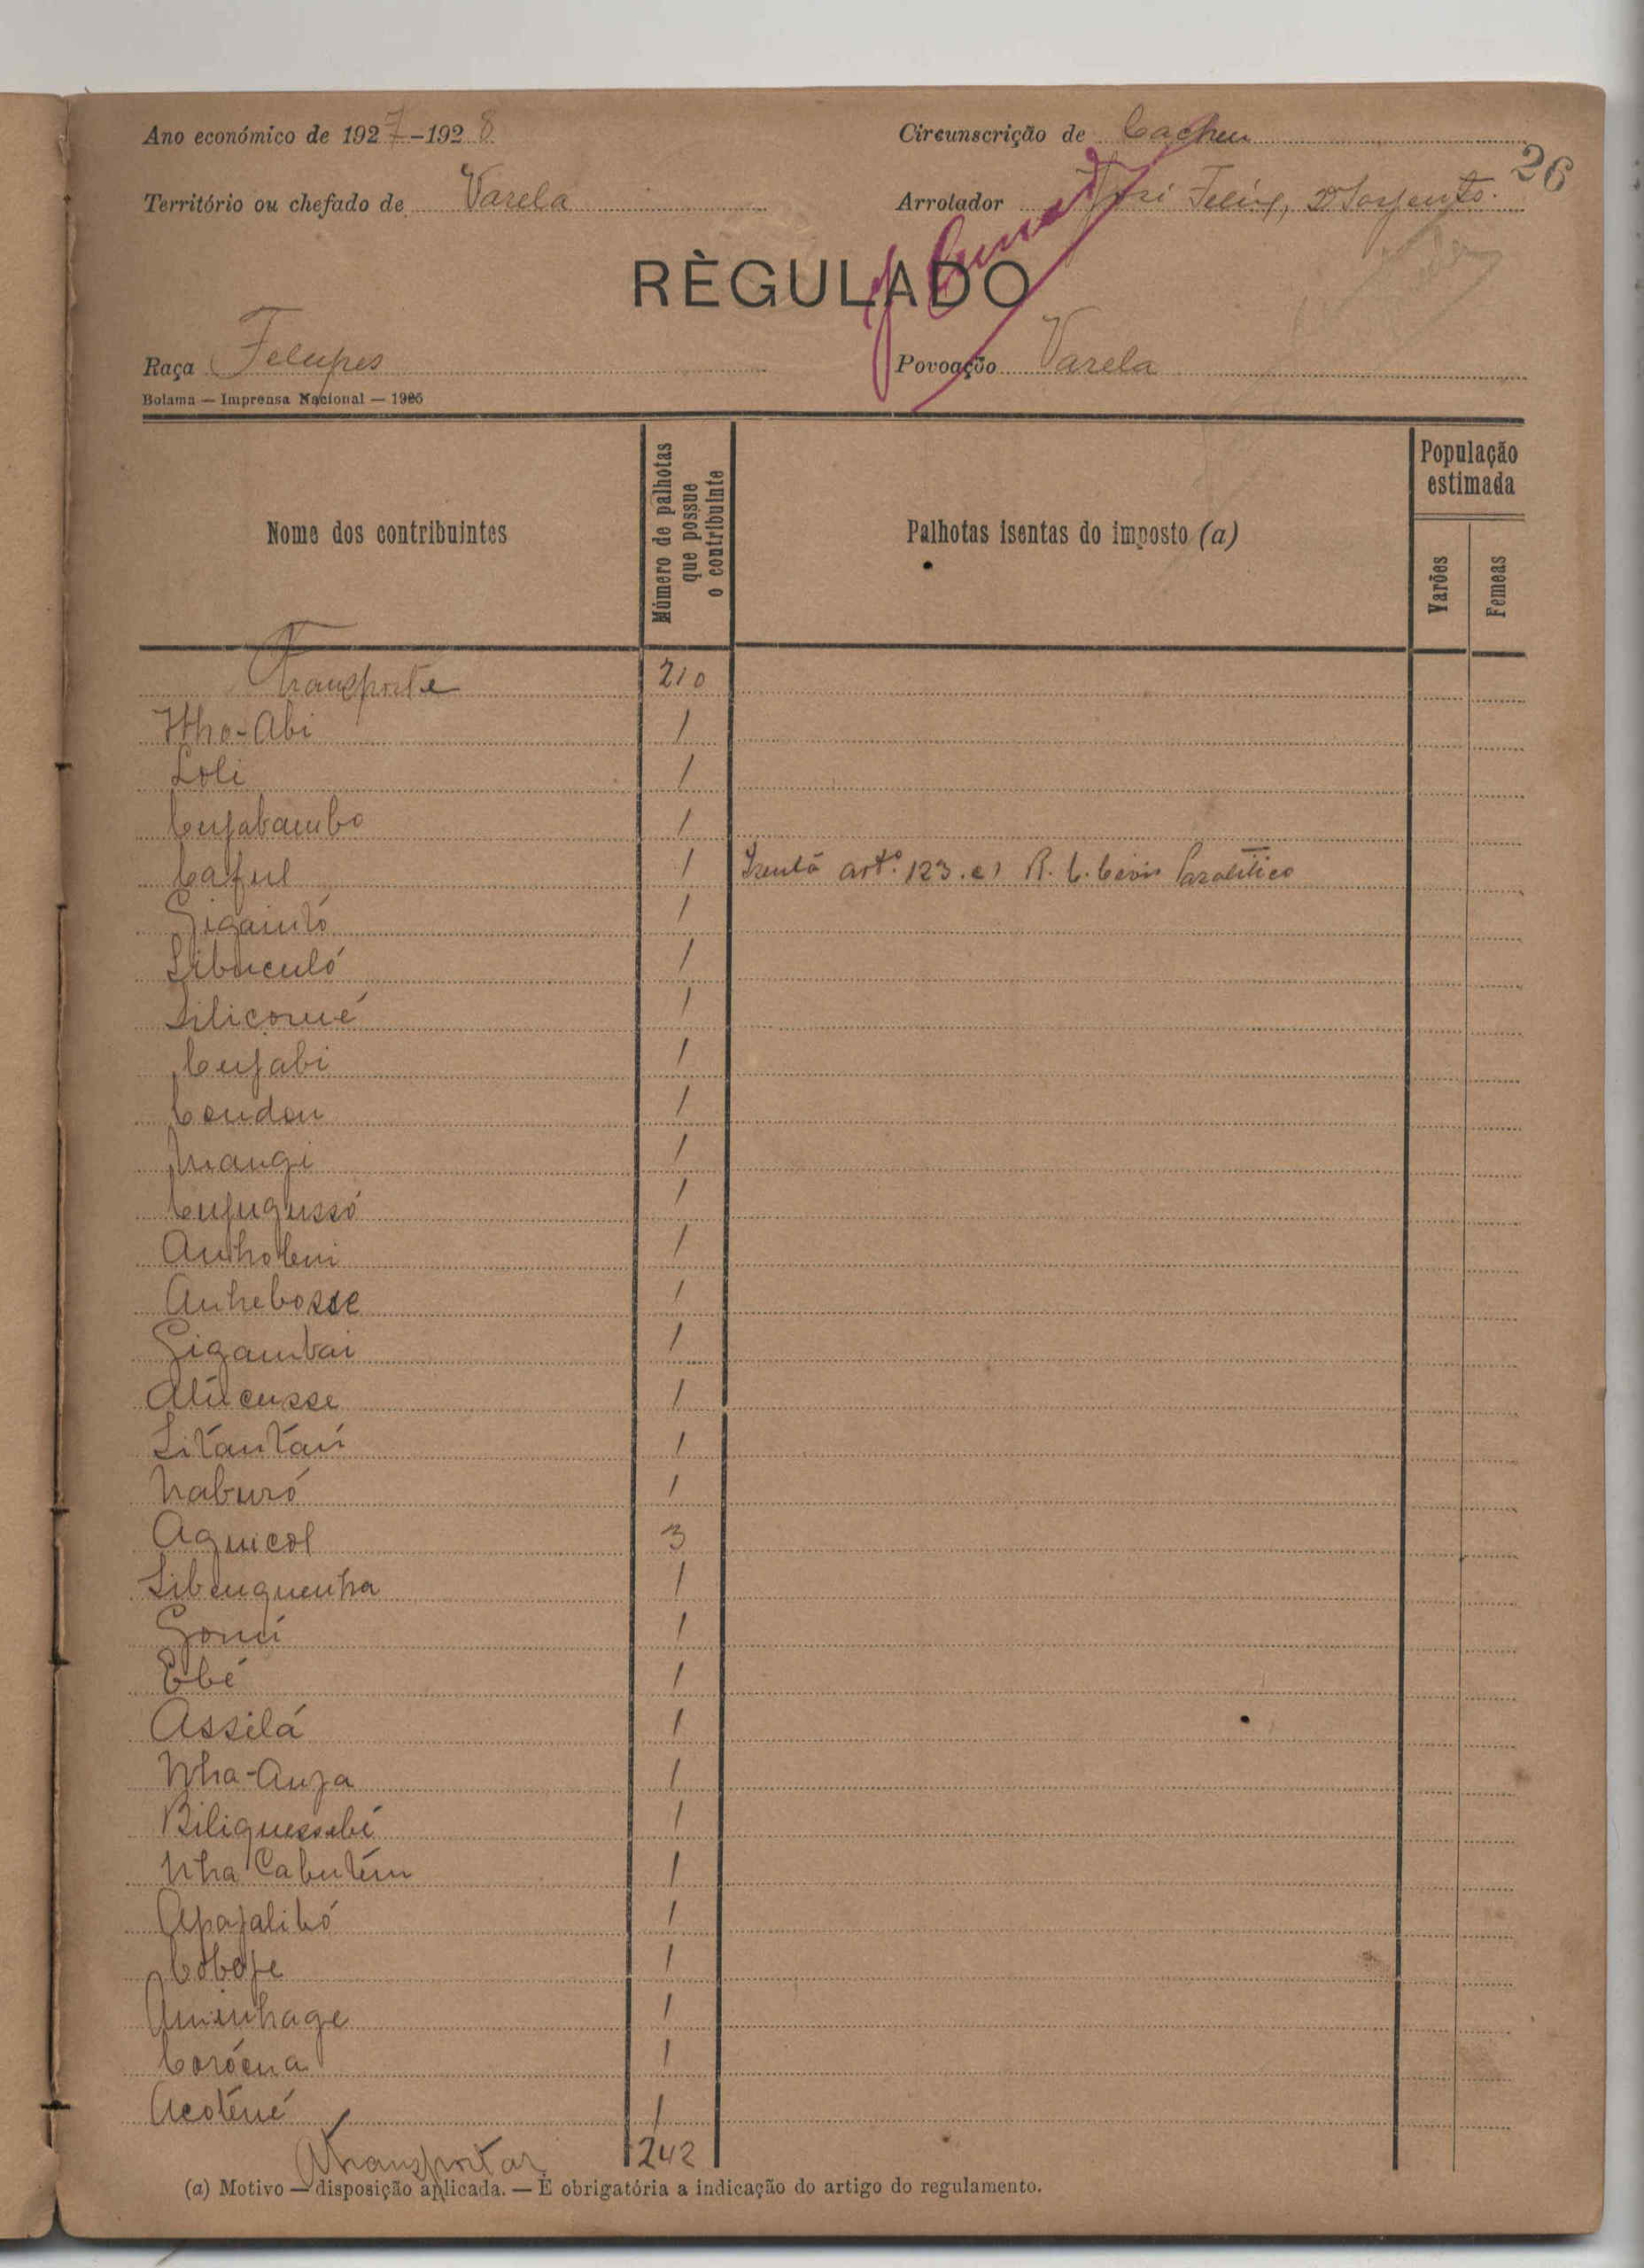 Ano económico de 1927-1928
Circunscrição de Cacheu
26
Território ou chefado de Varela
Arrolador José Felix, 2º Sargento.
RÈGULADO
Raça Felupes
Povoação Varela
Bolama — Imprensa Nacional — 1926
Nome dos contribuintes
Número de palhotas que possue o contribuinte
Palhotas isentas do imposto (a)
População estimada
Varões
Femeas
Transporte 210
Itho-Abi 1
Loli 1
Cujabambo 1
Caful 1 Isenta artº. 123. e) R. C. Civis Paralitico
Gigaintó 1
Libuculó 1
Silicomé 1
Cujabi 1
Coudou 1
Niangi 1
Cujugussó 1
Anhobeni 1
Anhebosse 1
Gigambai 1
Alincusse 1
Litantani 1
Naburó 1
Aguicol 3
Libenguenha 1
Gomi 1
Ebé 1
Assilá 1
Nha-Anja 1
Biliquessebi 1
Nha Cabutém 1
Apajalibó 1
Coboje 1
Aminhage 1
Coróena 1
Acoténé 1
A transportar 242
(a) Motivo — disposição aplicada. — É obrigatória a indicação do artigo do regulamento.